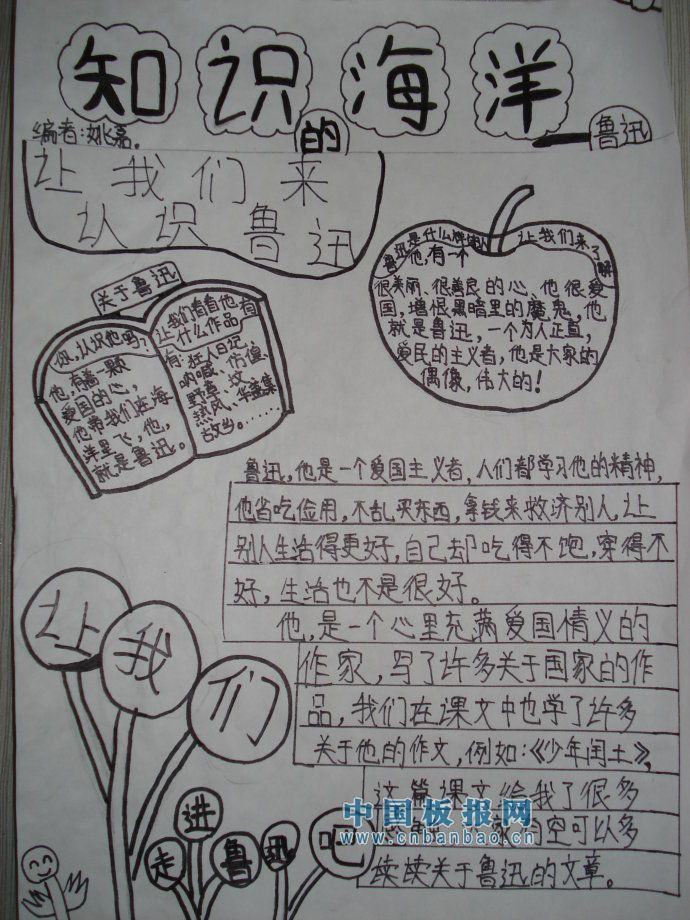 知识海洋
的
鲁迅
编者:姚嘉。
让我们来
认识鲁迅
鲁迅是什么样
让我们来了解
他,有一个
很美丽、很善良的心,他很爱
国,增恨黑暗里的魔鬼,他
就是鲁迅,一个为人正直,
爱民的主义者,他是大家的
偶像,伟大的!
关于鲁迅
你,认识他吗?
他,有着一颗
爱国的心,
他带我们在海
洋里飞,他,
就是鲁迅。
让我们看看他有
什么作品
有:狂人日记、
呐喊、仿偟、
野草、坟、
热风、华盖集
故乡。……
鲁迅,他是一个爱国主义者,人们都学习他的精神,
他省吃俭用,不乱买东西,拿钱来救济别人,让
别人生活得更好,自己却吃得不饱,穿得不
好,生活也不是很好。
他,是一个心里充满爱国情义的
作家,写了许多关于国家的作
品,我们在课文中也学了许多
关于他的作文,例如:《少年闰土》,
这篇课文给我了很多
空可以多
读读关于鲁迅的文章。
让我们
走进鲁迅吧
中国板报网
www.cnbanbao.cn